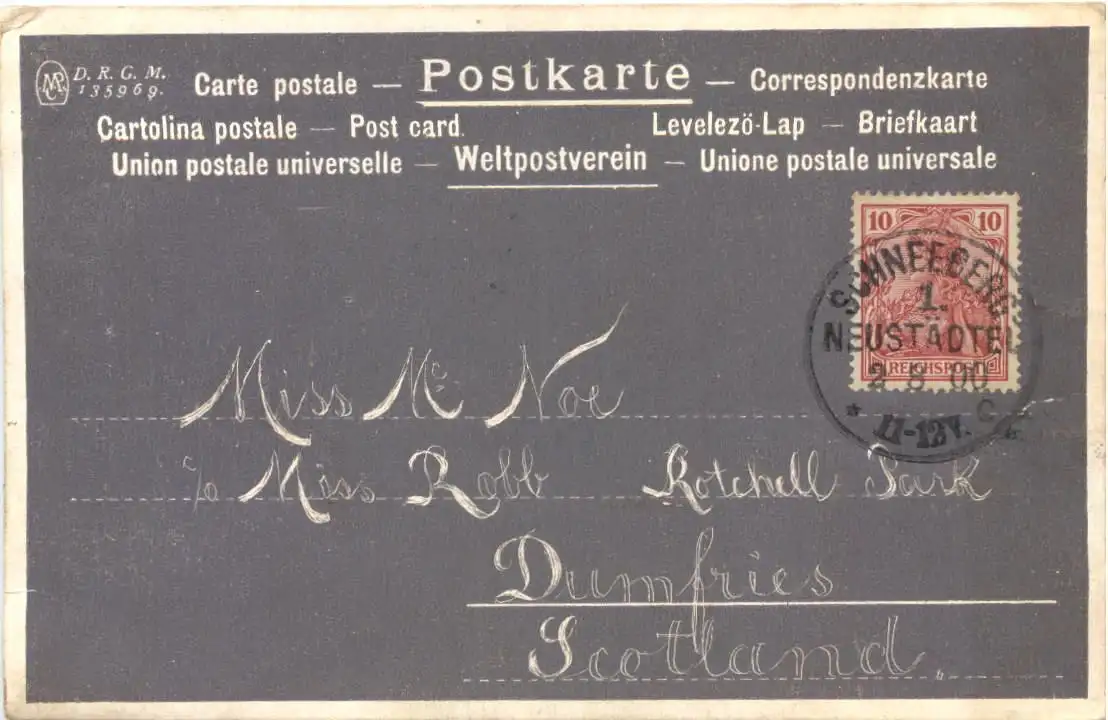 D. R. G. M.
135969.
Carte postale — Postkarte — Correspondenzkarte
Cartolina postale — Post card. Levelezö-Lap — Briefkaart
Union postale universelle — Weltpostverein — Unione postale universale
10 10
REICHSPOST
SCHNEEBERG
1.
NEUSTÄDTEL
2 8 00
11-12V. C
Miss Mc Noe
c/o Miss Robb Rotchell Park
Dumfries
Scotland.